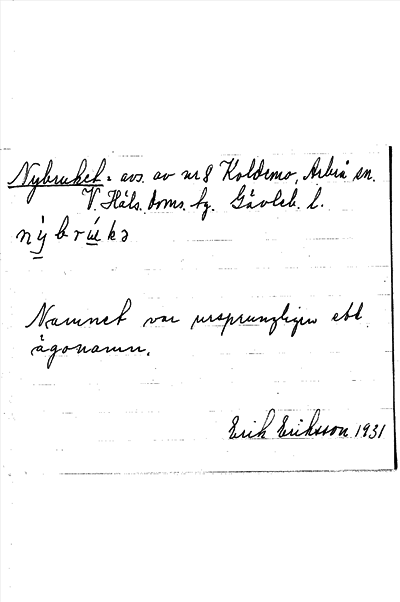 Nybruket = avs. av nr 8 Koldemo, Arbrå sn.
V. Häls. doms. hg. Gävleb. l.
nýbrúkə
Namnet var ursprungligen ett
ägonamn.
Erik Eriksson 1931